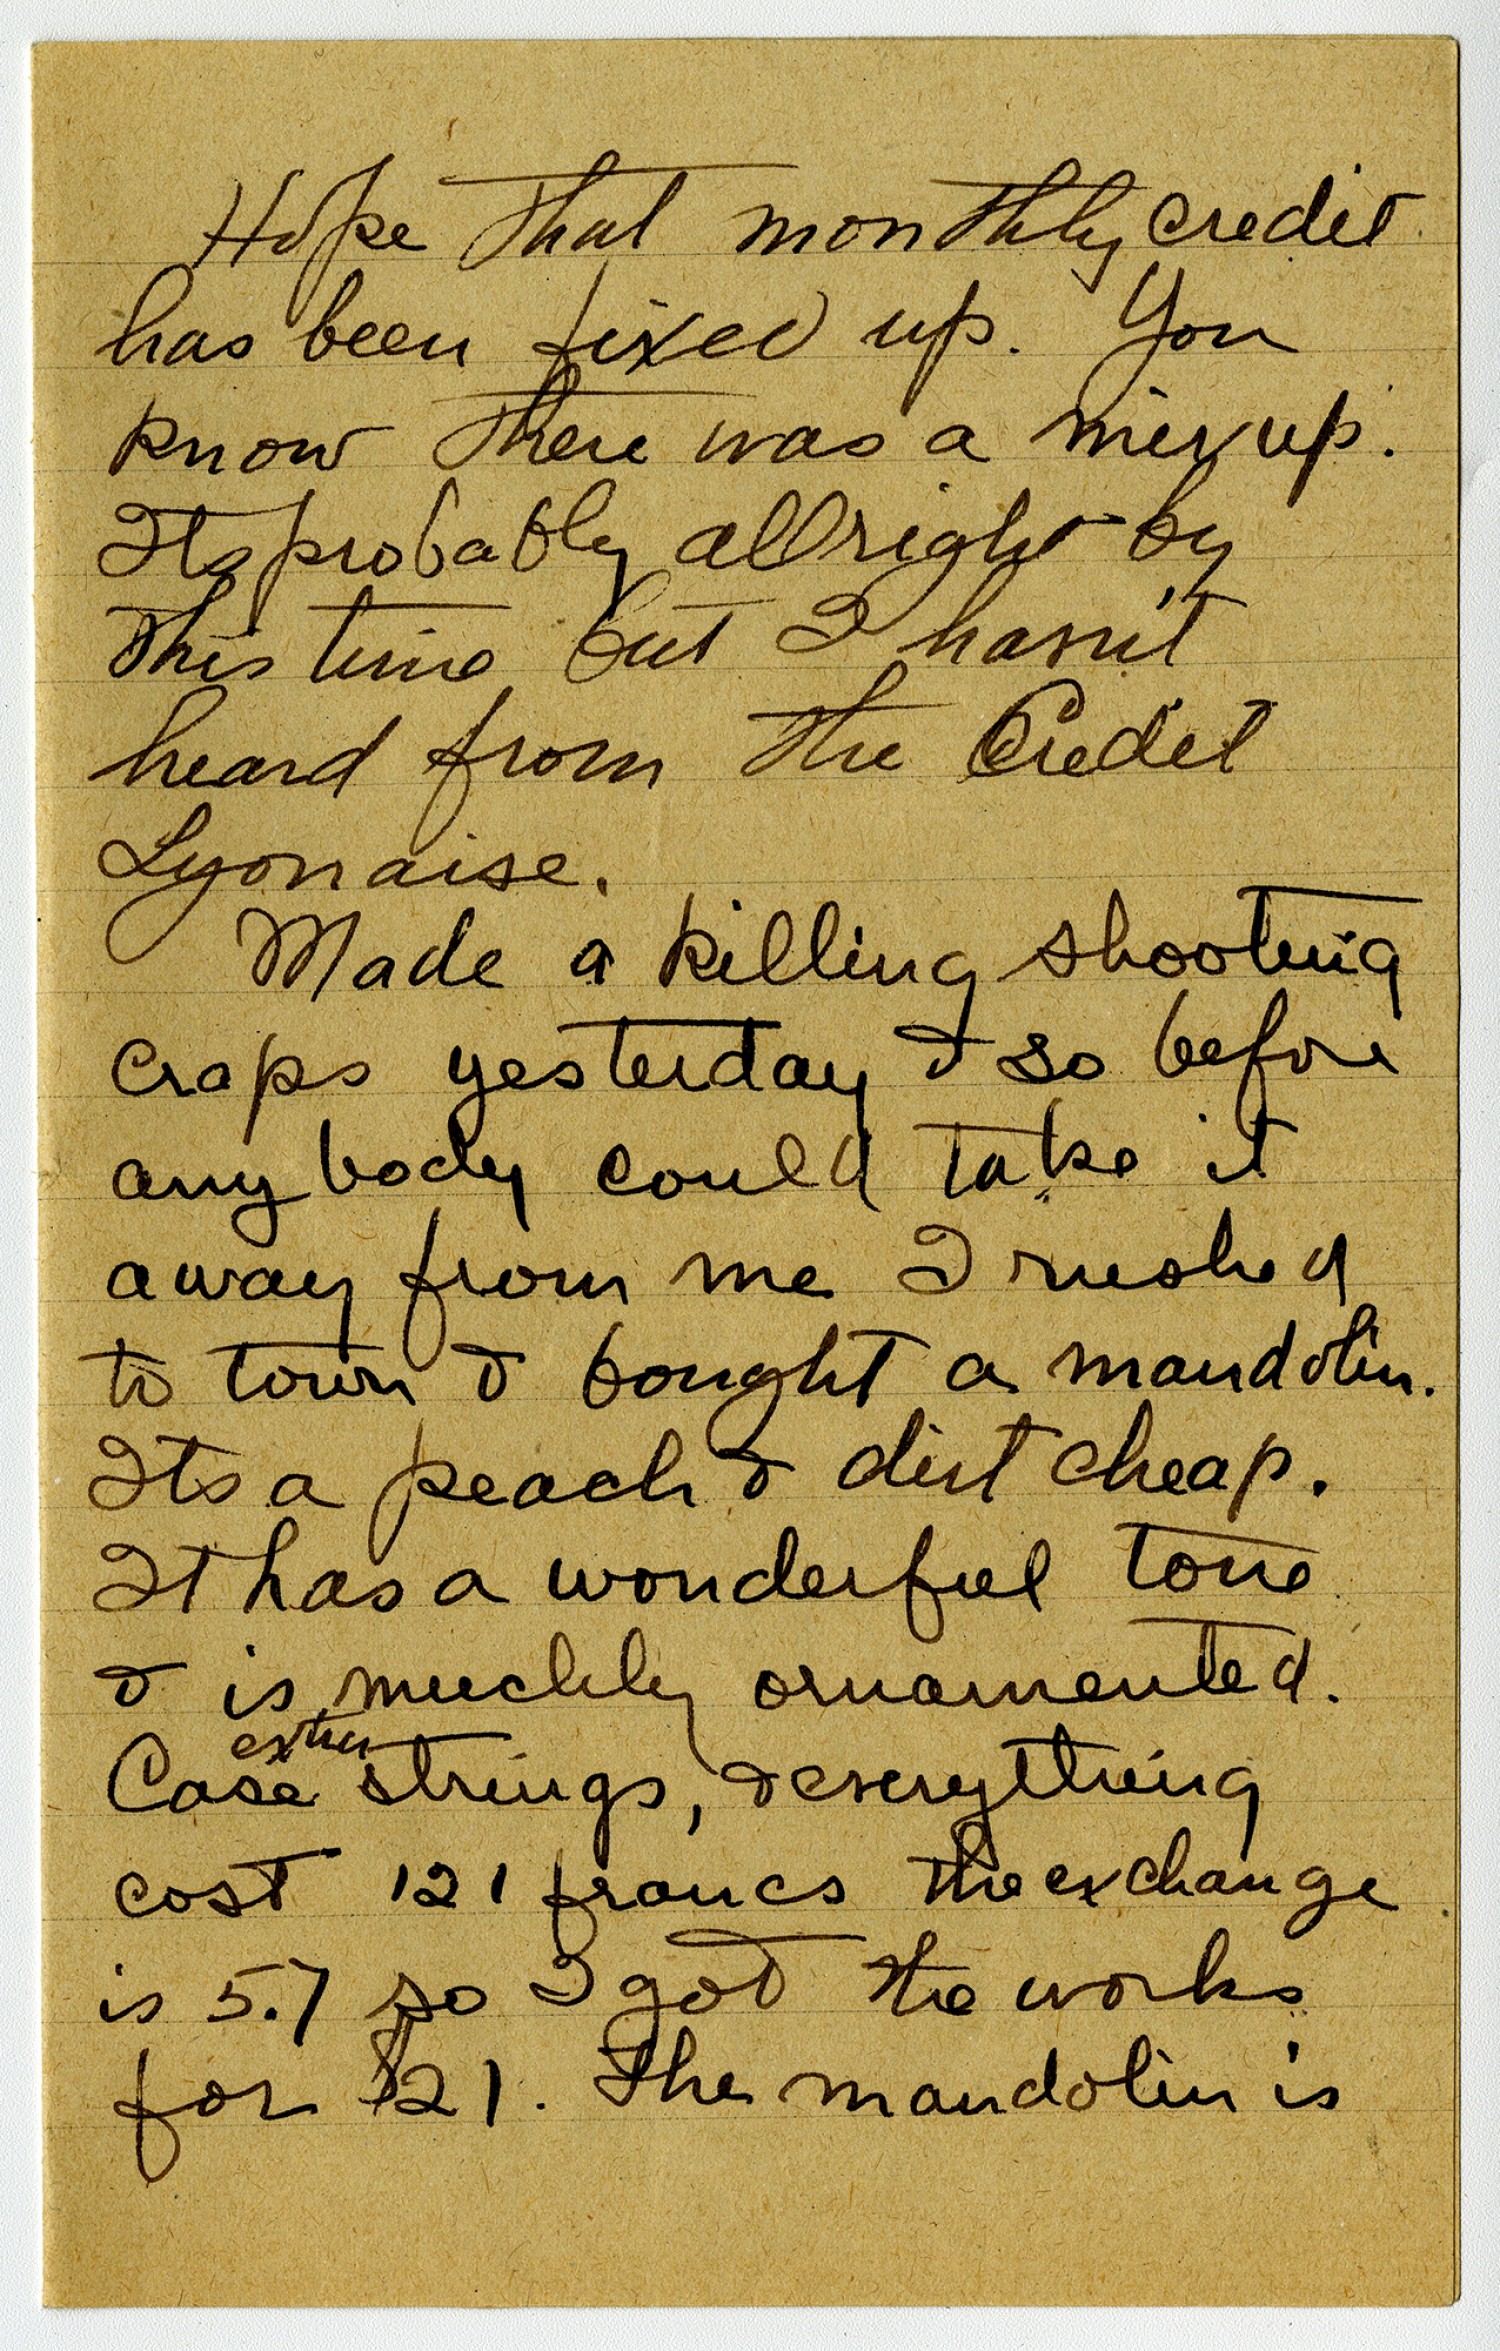 Hope that monthly credit
has been fixed up. You
know there was a mix up.
Its probably allright by
this time but I hasn't
heard from the Credit
Lyonaise.
Made a killing shooting
craps yesterday & so before
any body could take it
away from me I rushed
to town & bought a mandolin.
Its a peach & dirt cheap.
It has a wonderful tone
& is muchly ornamented.
extra
Case strings, & everything
cost 121 francs the exchange
is 5.7 so I got the works
for $21. The mandolin is